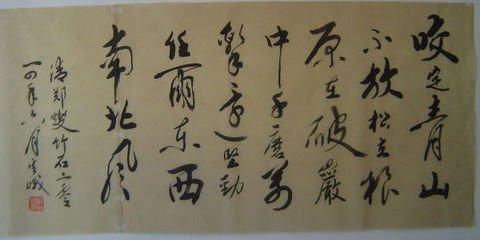 咬定青山
不放松立根
原在破巖
中千磨万
擊还堅勁
任爾东西
南北风
清郑燮竹石
一四年六月